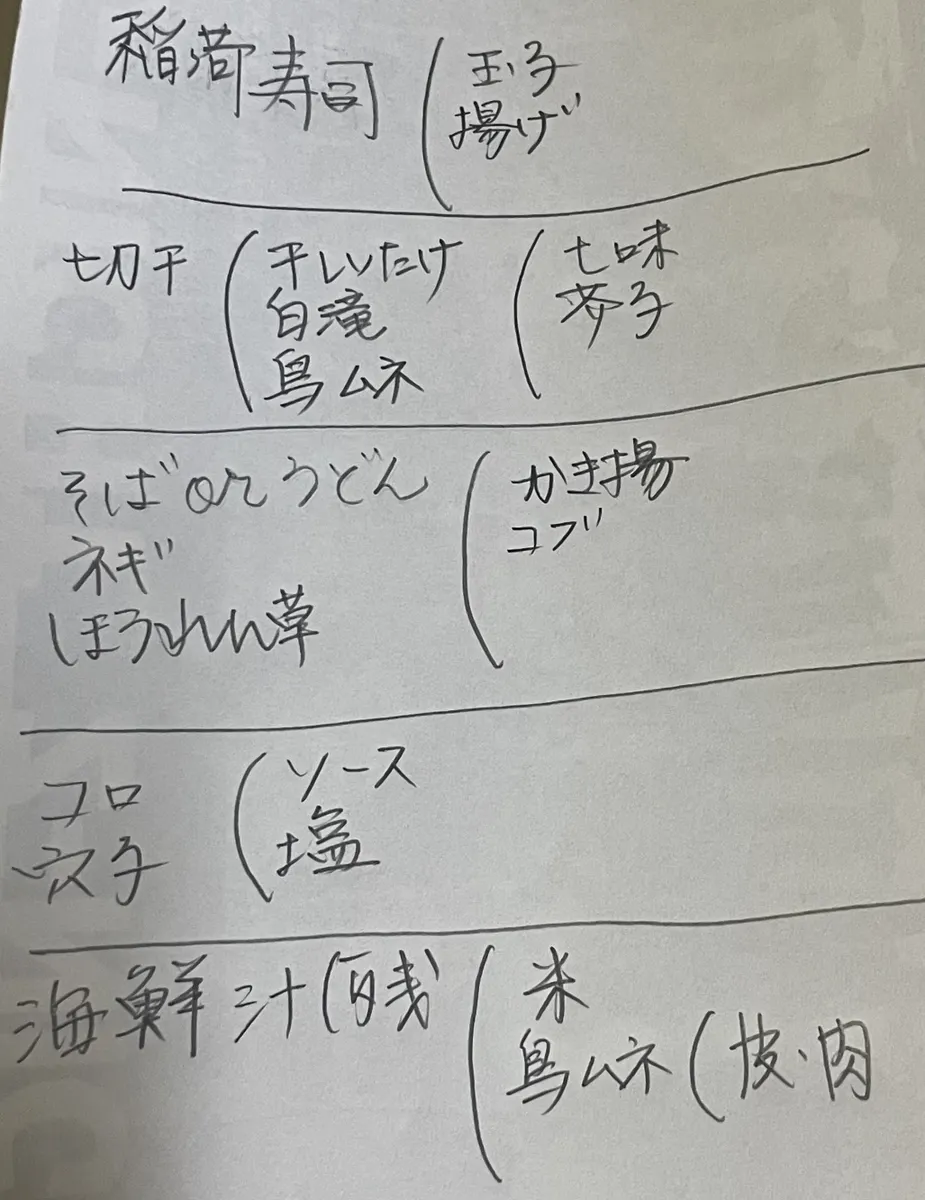 稲荷寿司 ( 玉子
揚げ
切干 ( 干しいたけ ( 七味
白滝 芥子
鳥ムネ
そば or うどん ( かき揚
ネギ コブ
ほうれん草
コロ ( ソース
穴子 塩
海鮮汁(残 ( 米
鳥ムネ ( 皮・肉